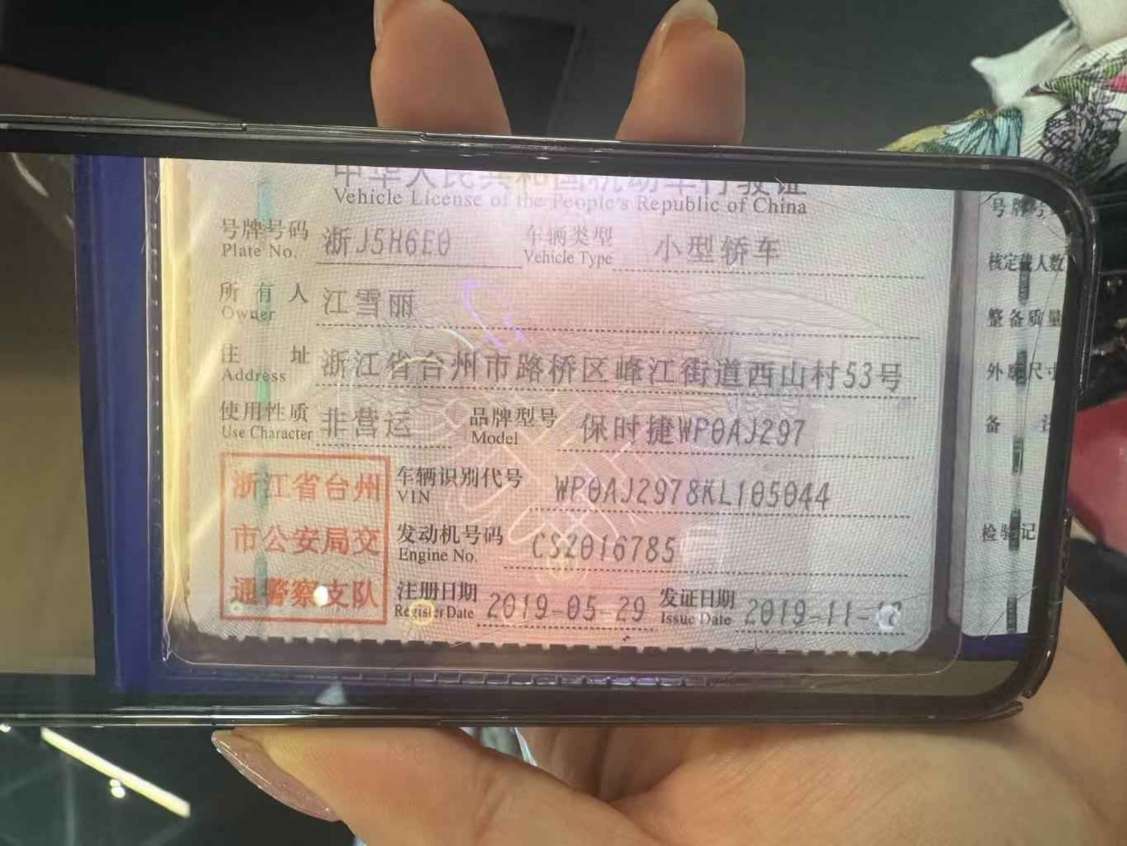 中华人民共和国机动车行驶证
Vehicle License of the People's Republic of China
号牌号码 浙J5H6E0 车辆类型 小型轿车
Plate No. Vehicle Type
所有人 江雪丽
Owner
住址 浙江省台州市路桥区峰江街道西山村53号
Address
使用性质 非营运 品牌型号 保时捷WP0AJ297
Use Character Model
浙江省台州
市公安局交
通警察支队
车辆识别代号 WP0AJ2978KL105044
VIN
发动机号码 CSZ016785
Engine No.
注册日期 2019-05-29 发证日期 2019-11-
Register Date Issue Date
号牌号
核定载人数
整备质量
外廓尺寸
备
检验记